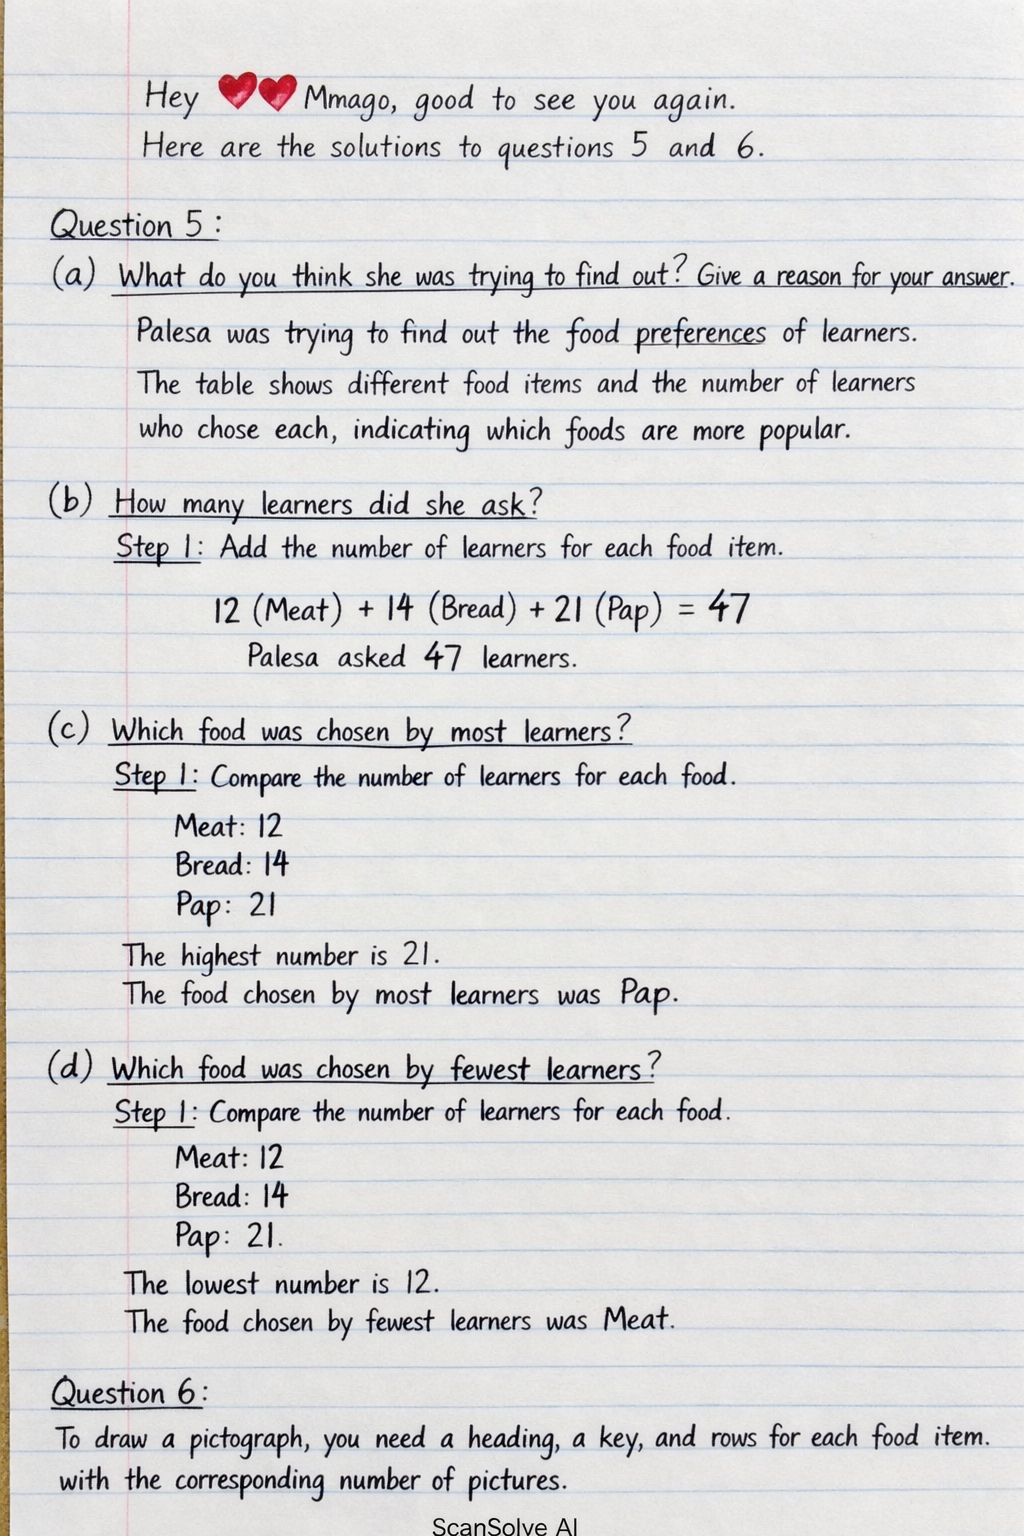 Hey ❤❤ Mmago, good to see you again.
Here are the solutions to questions 5 and 6.
Question 5:
(a) What do you think she was trying to find out? Give a reason for your answer.
Palesa was trying to find out the food preferences of learners.
The table shows different food items and the number of learners
who chose each, indicating which foods are more popular.
(b) How many learners did she ask?
Step 1: Add the number of learners for each food item.
12 (Meat) + 14 (Bread) + 21 (Pap) = 47
Palesa asked 47 learners.
(c) Which food was chosen by most learners?
Step 1: Compare the number of learners for each food.
Meat: 12
Bread: 14
Pap: 21
The highest number is 21.
The food chosen by most learners was Pap.
(d) Which food was chosen by fewest learners?
Step 1: Compare the number of learners for each food.
Meat: 12
Bread: 14
Pap: 21.
The lowest number is 12.
The food chosen by fewest learners was Meat.
Question 6:
To draw a pictograph, you need a heading, a key, and rows for each food item.
with the corresponding number of pictures.
ScanSolve AI